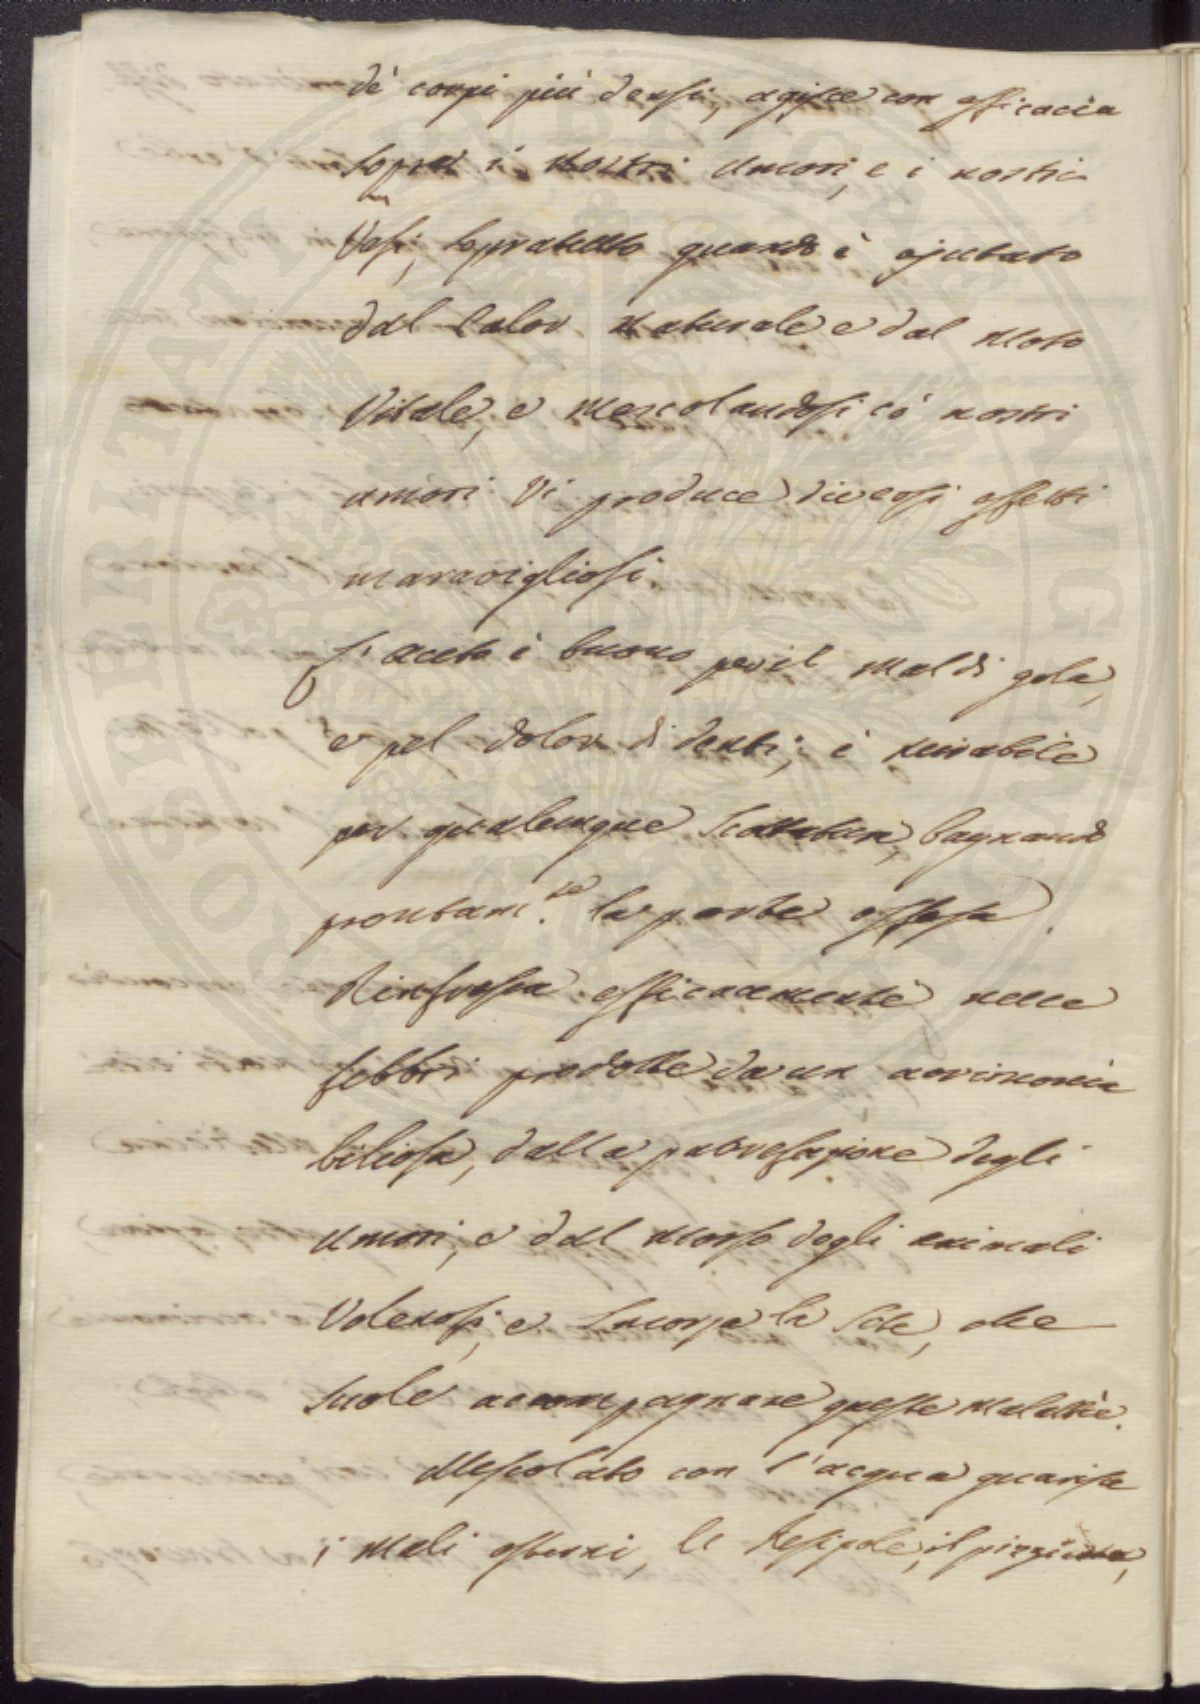 de' corpi più densi, agisce con efficacia
sopra i nostri umori, e i nostri
Vasi, sopratutto quando è ajutato
dal Calor naturale e dal moto
Vitale, e mescolandosi co' nostri
umori vi produce diversi effetti
maravigliosi
L'aceto è buono per il mal di gola,
e pel dolor di denti; è mirabile
per qualunque Scottatura, bagnando
prontam.te la parte offesa.
Rinfresca efficacemente nelle
febbri prodotte da un acrimonia
biliosa, dalla putrefazione degli
umori, e dal morso degli animali
Velenosi, e smorza la Sete, che
suole accompagnare queste malattie.
Mescolato con l'acqua guarisce
i mali esterni, le Resipole, il pizzicore,
SOSPERITATI PUBLICAE AUGENDAE